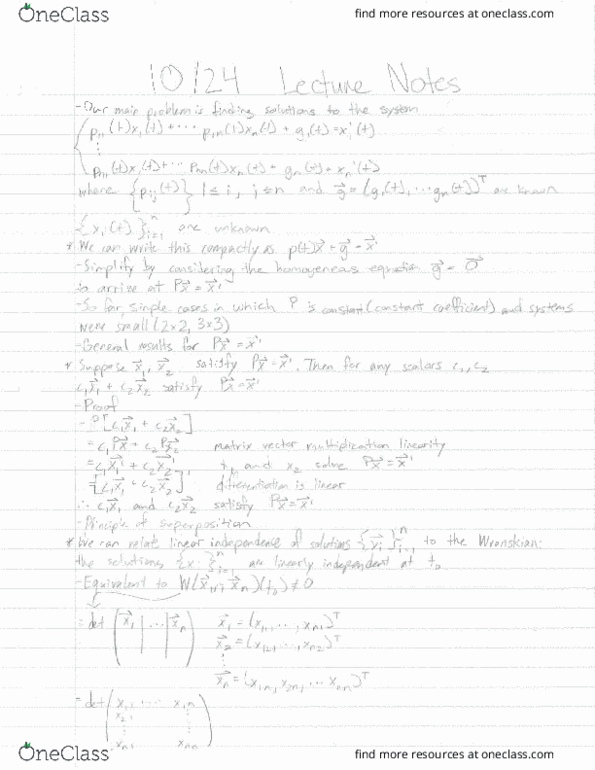 OneClass
find more resources at oneclass.com
10/24 Lecture Notes
- Our main problem is finding solutions to the system
p₁₁(t)x₁(t) + ... p₁ₙ(t)xₙ(t) + g₁(t) = x₁'(t)
⋮
pₙ₁(t)x₁(t) + ... pₙₙ(t)xₙ(t) + gₙ(t) = xₙ'(t)
where {pᵢⱼ(t)} 1 ≤ i, j ≤ n and g⃗ = (g₁(t), ... gₙ(t))ᵀ are known
{xᵢ(t)}ⁿᵢ₌₁ are unknown
* We can write this compactly as p(t)x⃗ + g⃗ = x⃗'
- Simplify by considering the homogeneous equation g⃗ = 0⃗
to arrive at Px⃗ = x⃗'
- So far, simple cases in which P is constant (constant coefficient) and systems
were small (2x2, 3x3)
- General results for Px⃗ = x⃗'
* Suppose x⃗₁, x⃗₂ satisfy Px⃗ = x⃗'. Then for any scalars c₁, c₂
c₁x⃗₁ + c₂x⃗₂ satisfy Px⃗ = x⃗'
- Proof
- P[c₁x⃗₁ + c₂x⃗₂]
= c₁Px⃗₁ + c₂Px⃗₂ matrix vector multiplication linearity
= c₁x⃗₁' + c₂x⃗₂' and x₂ solve Px⃗ = x⃗'
= [c₁x⃗₁ + c₂x⃗₂]' differentiation is linear
∴ c₁x⃗₁ and c₂x⃗₂ satisfy Px⃗ = x⃗'
- Principle of superposition
* We can relate linear independence of solutions {x⃗ᵢ}ⁿᵢ₌₁ to the Wronskian:
the solutions {xᵢ}ⁿᵢ₌₁ are linearly independent at t₀
- Equivalent to W(x⃗₁, x⃗ₙ)(t₀) ≠ 0
= det (x⃗₁ | ... | x⃗ₙ) x⃗₁ = (x₁₁, ..., xₙ₁)ᵀ
x⃗₂ = (x₁₂, ..., xₙ₂)ᵀ
⋮
x⃗ₙ = (x₁ₙ, x₂ₙ, ... xₙₙ)ᵀ
= det (x₁₁ ... x₁ₙ
x₂₁ ⋮
xₙ₁ xₙₙ)
OneClass
find more resources at oneclass.com